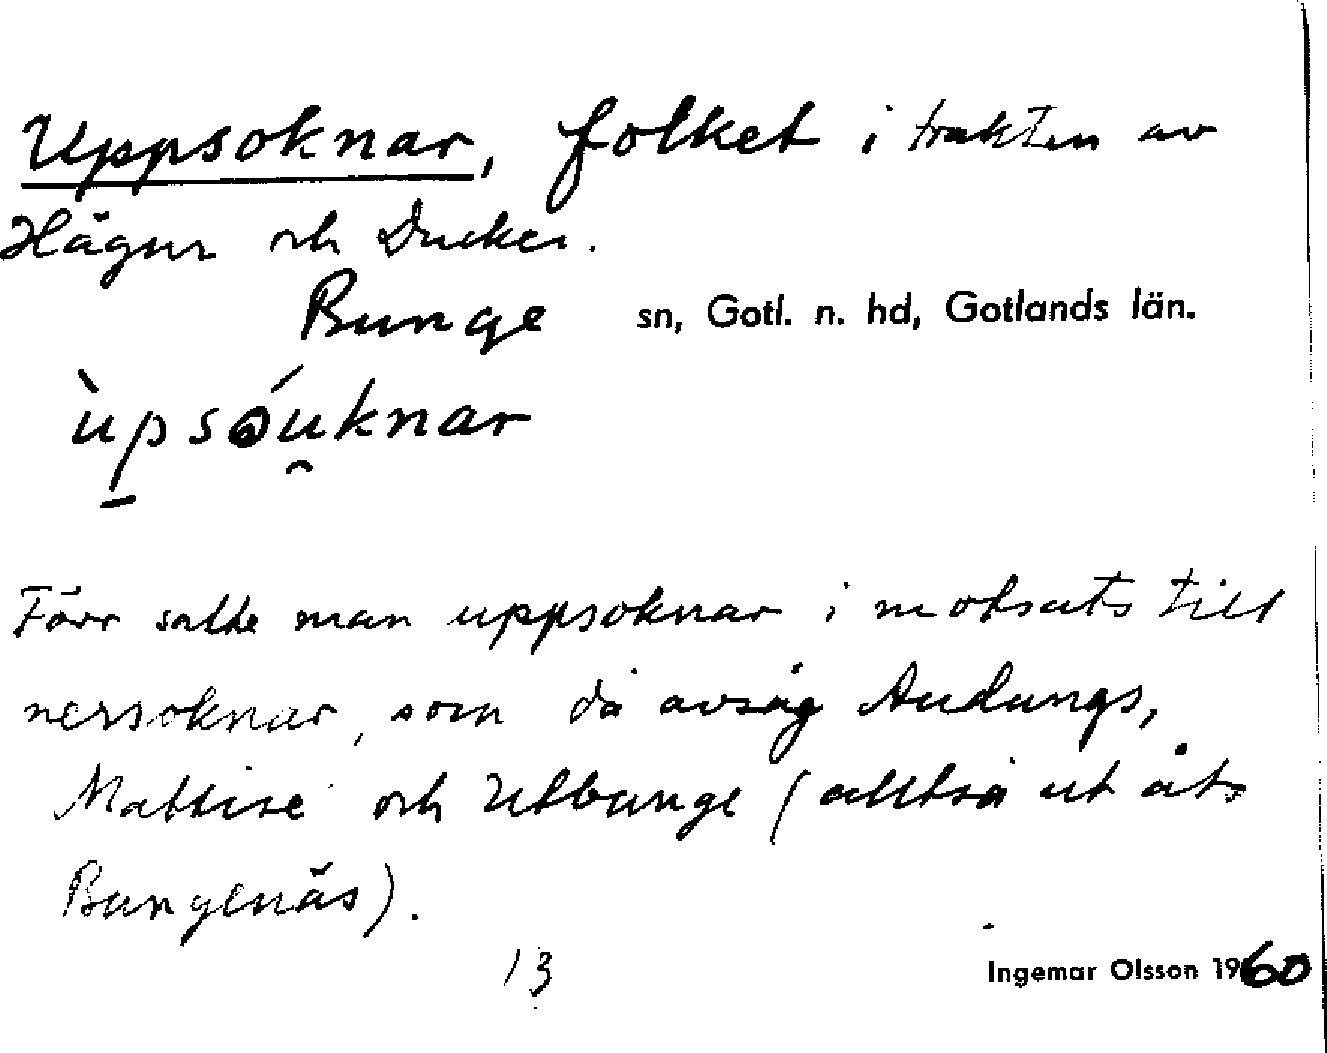 Uppsoknar, folket i trakten av
Hägur och Ducker.
Bunge sn, Gotl. n. hd, Gotlands län.
ùpsóu̯knar
Förr sade man uppsoknar i motsats till
nersoknar, som då avsåg Audungs,
Mattise och Utbunge (alltså ut åts
Bungenäs).
13
Ingemar Olsson 1960